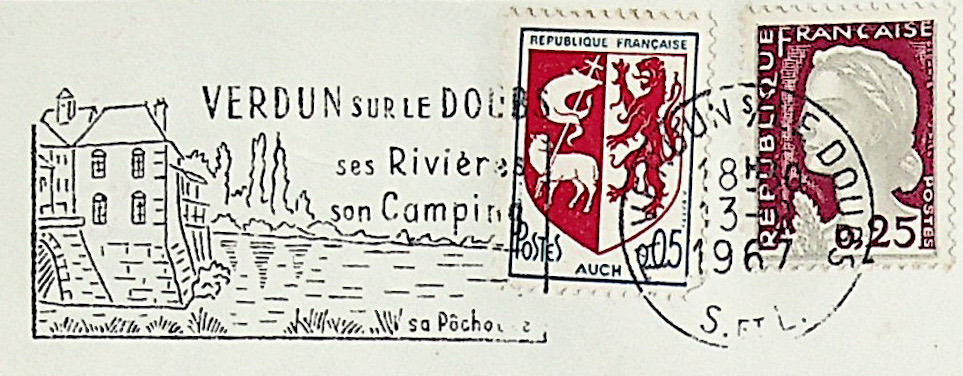 VERDUN SUR LE DOUBS
ses Rivières
son Camping
sa Pôchouse
RÉPUBLIQUE FRANÇAISE
POSTES
0,05
AUCH
RÉPUBLIQUE
FRANÇAISE
POSTES
0,25
VERDUN S/ LE DOUBS
18H
13-
1967
S. ET L.